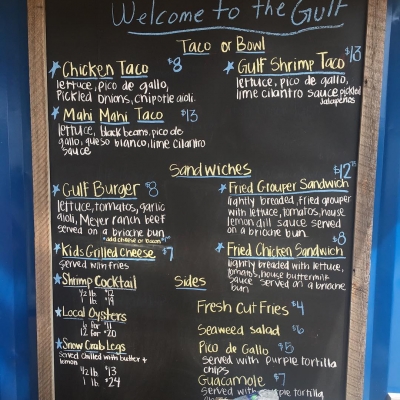 Welcome to the Gulf
Taco or Bowl
Chicken Taco $8
lettuce, pico de gallo,
pickled onions, chipotle aioli
Mahi Mahi Taco $13
lettuce, black beans, pico de
gallo, queso blanco, lime cilantro
sauce
Gulf Shrimp Taco $13
lettuce, pico de gallo,
lime cilantro sauce pickled
jalapeños
Sandwiches
Gulf Burger $8
lettuce, tomatoes, garlic
aioli, Meyer ranch beef
served on a brioche bun
*add cheese or bacon
Kids Grilled Cheese $7
served with fries
Fried Grouper Sandwich $12
lightly breaded, fried grouper
with lettuce, tomatoes, house
lemon dill sauce served
on a brioche bun
Fried Chicken Sandwich $8
lightly breaded with lettuce,
tomato, house buttermilk
sauce served on a brioche
bun
Shrimp Cocktail
1/2 lb $12
1 lb $19
Local Oysters
6 for $11
12 for $20
Snow Crab Legs
served chilled with butter +
lemon
1/2 lb $13
1 lb $24
Sides
Fresh Cut Fries $4
Seaweed salad $6
Pico de Gallo $5
served with purple tortilla
chips
Guacamole $7
served with purple tortilla